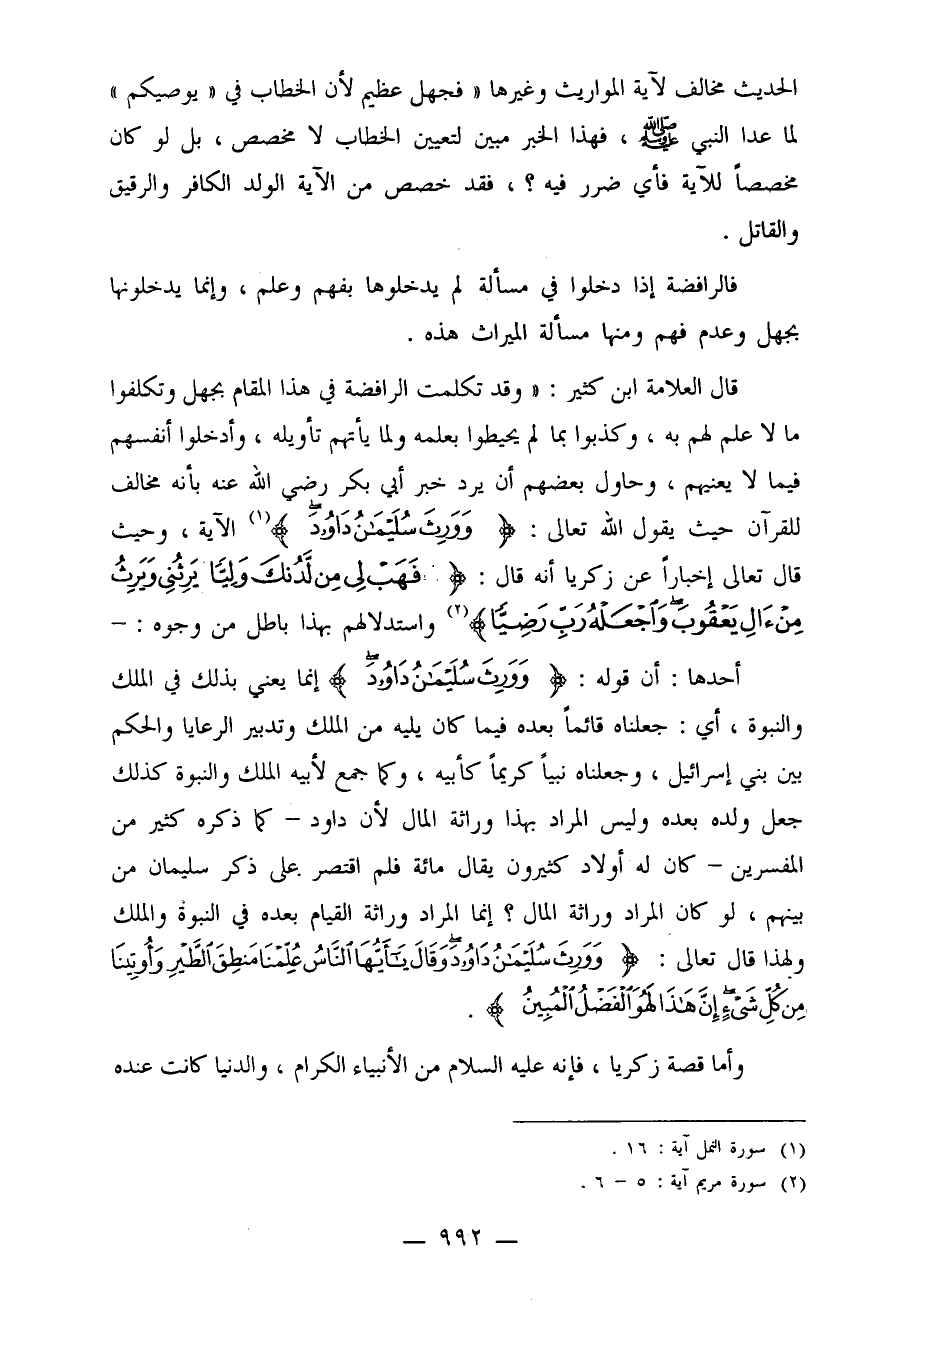 الحديث مخالف لآية المواريث وغيرها « فجهل عظيم لأن الخطاب في « يوصيكم »
لما عدا النبي ﷺ ، فهذا الخبر مبين لتعيين الخطاب لا مخصص ، بل لو كان
مخصصاً للآية فأي ضرر فيه ؟ ، فقد خصص من الآية الولد الكافر والرقيق
والقاتل .
فالرافضة إذا دخلوا في مسألة لم يدخلوها بفهم وعلم ، وإنما يدخلونها
بجهل وعدم فهم ومنها مسألة الميراث هذه .
قال العلامة ابن كثير : « وقد تكلمت الرافضة في هذا المقام بجهل وتكلفوا
ما لا علم لهم به ، وكذبوا بما لم يحيطوا بعلمه ولما يأتهم تأويله ، وأدخلوا أنفسهم
فيما لا يعنيهم ، وحاول بعضهم أن يرد خبر أبي بكر رضي الله عنه بأنه مخالف
للقرآن حيث يقول الله تعالى : ﴿ وَوَرِثَ سُلَيْمَٰنُ دَاوُۥدَۖ ﴾(١) الآية ، وحيث
قال تعالى إخباراً عن زكريا أنه قال : ﴿ فَهَبْ لِي مِن لَّدُنكَ وَلِيًّا يَرِثُنِي وَيَرِثُ
مِنْ ءَالِ يَعْقُوبَۖ وَٱجْعَلْهُ رَبِّ رَضِيًّا ﴾(٢) واستدلالهم بهذا باطل من وجوه : –
أحدها : أن قوله : ﴿ وَوَرِثَ سُلَيْمَٰنُ دَاوُۥدَۖ ﴾ إنما يعني بذلك في الملك
والنبوة ، أي : جعلناه قائماً بعده فيما كان يليه من الملك وتدبير الرعايا والحكم
بين بني إسرائيل ، وجعلناه نبياً كريماً كأبيه ، وكما جمع لأبيه الملك والنبوة كذلك
جعل ولده بعده وليس المراد بهذا وراثة المال لأن داود – كما ذكره كثير من
المفسرين – كان له أولاد كثيرون يقال مائة فلم اقتصر على ذكر سليمان من
بينهم ، لو كان المراد وراثة المال ؟ إنما المراد وراثة القيام بعده في النبوة والملك
ولهذا قال تعالى : ﴿ وَوَرِثَ سُلَيْمَٰنُ دَاوُۥدَۖ وَقَالَ يَٰٓأَيُّهَا ٱلنَّاسُ عُلِّمْنَا مَنطِقَ ٱلطَّيْرِ وَأُوتِينَا
مِن كُلِّ شَيْءٍۖ إِنَّ هَٰذَا لَهُوَ ٱلْفَضْلُ ٱلْمُبِينُ ﴾ .
وأما قصة زكريا ، فإنه عليه السلام من الأنبياء الكرام ، والدنيا كانت عنده
(١) سورة النمل آية : ١٦ .
(٢) سورة مريم آية : ٥ – ٦ .
— ٩٩٢ —